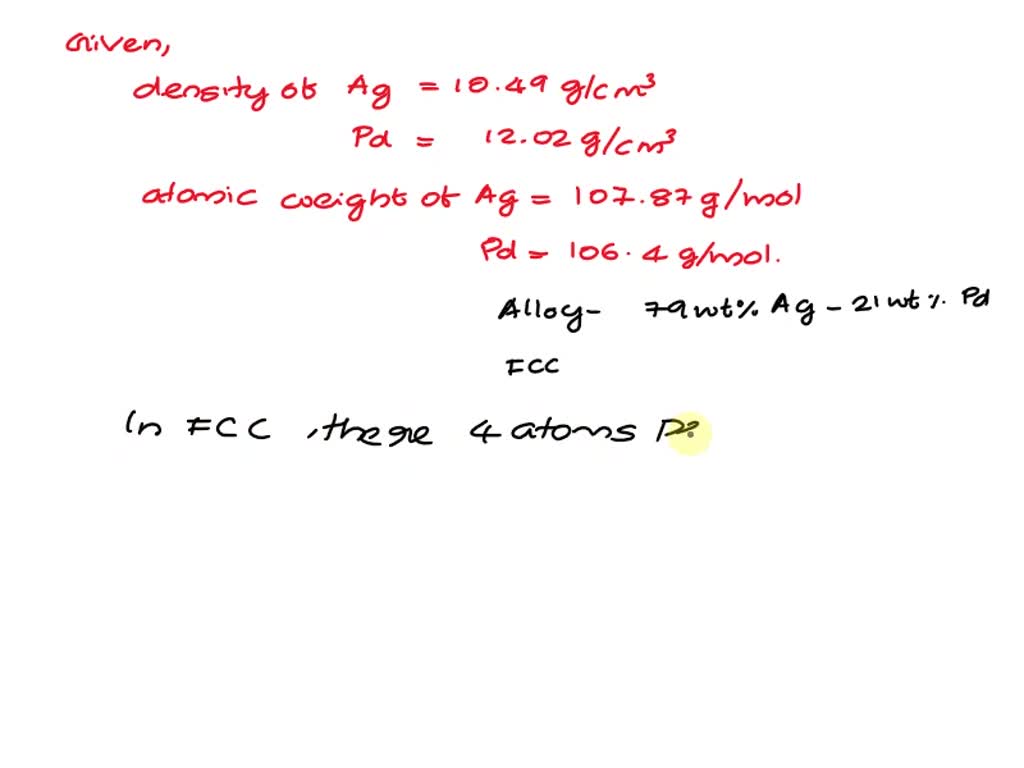 Given,
density of Ag = 10.49 g/cm³
Pd = 12.02 g/cm³
atomic weight of Ag = 107.87 g/mol
Pd = 106.4 g/mol.
Alloy - 79 wt% Ag - 21 wt% Pd
FCC
In FCC, there 4 atoms